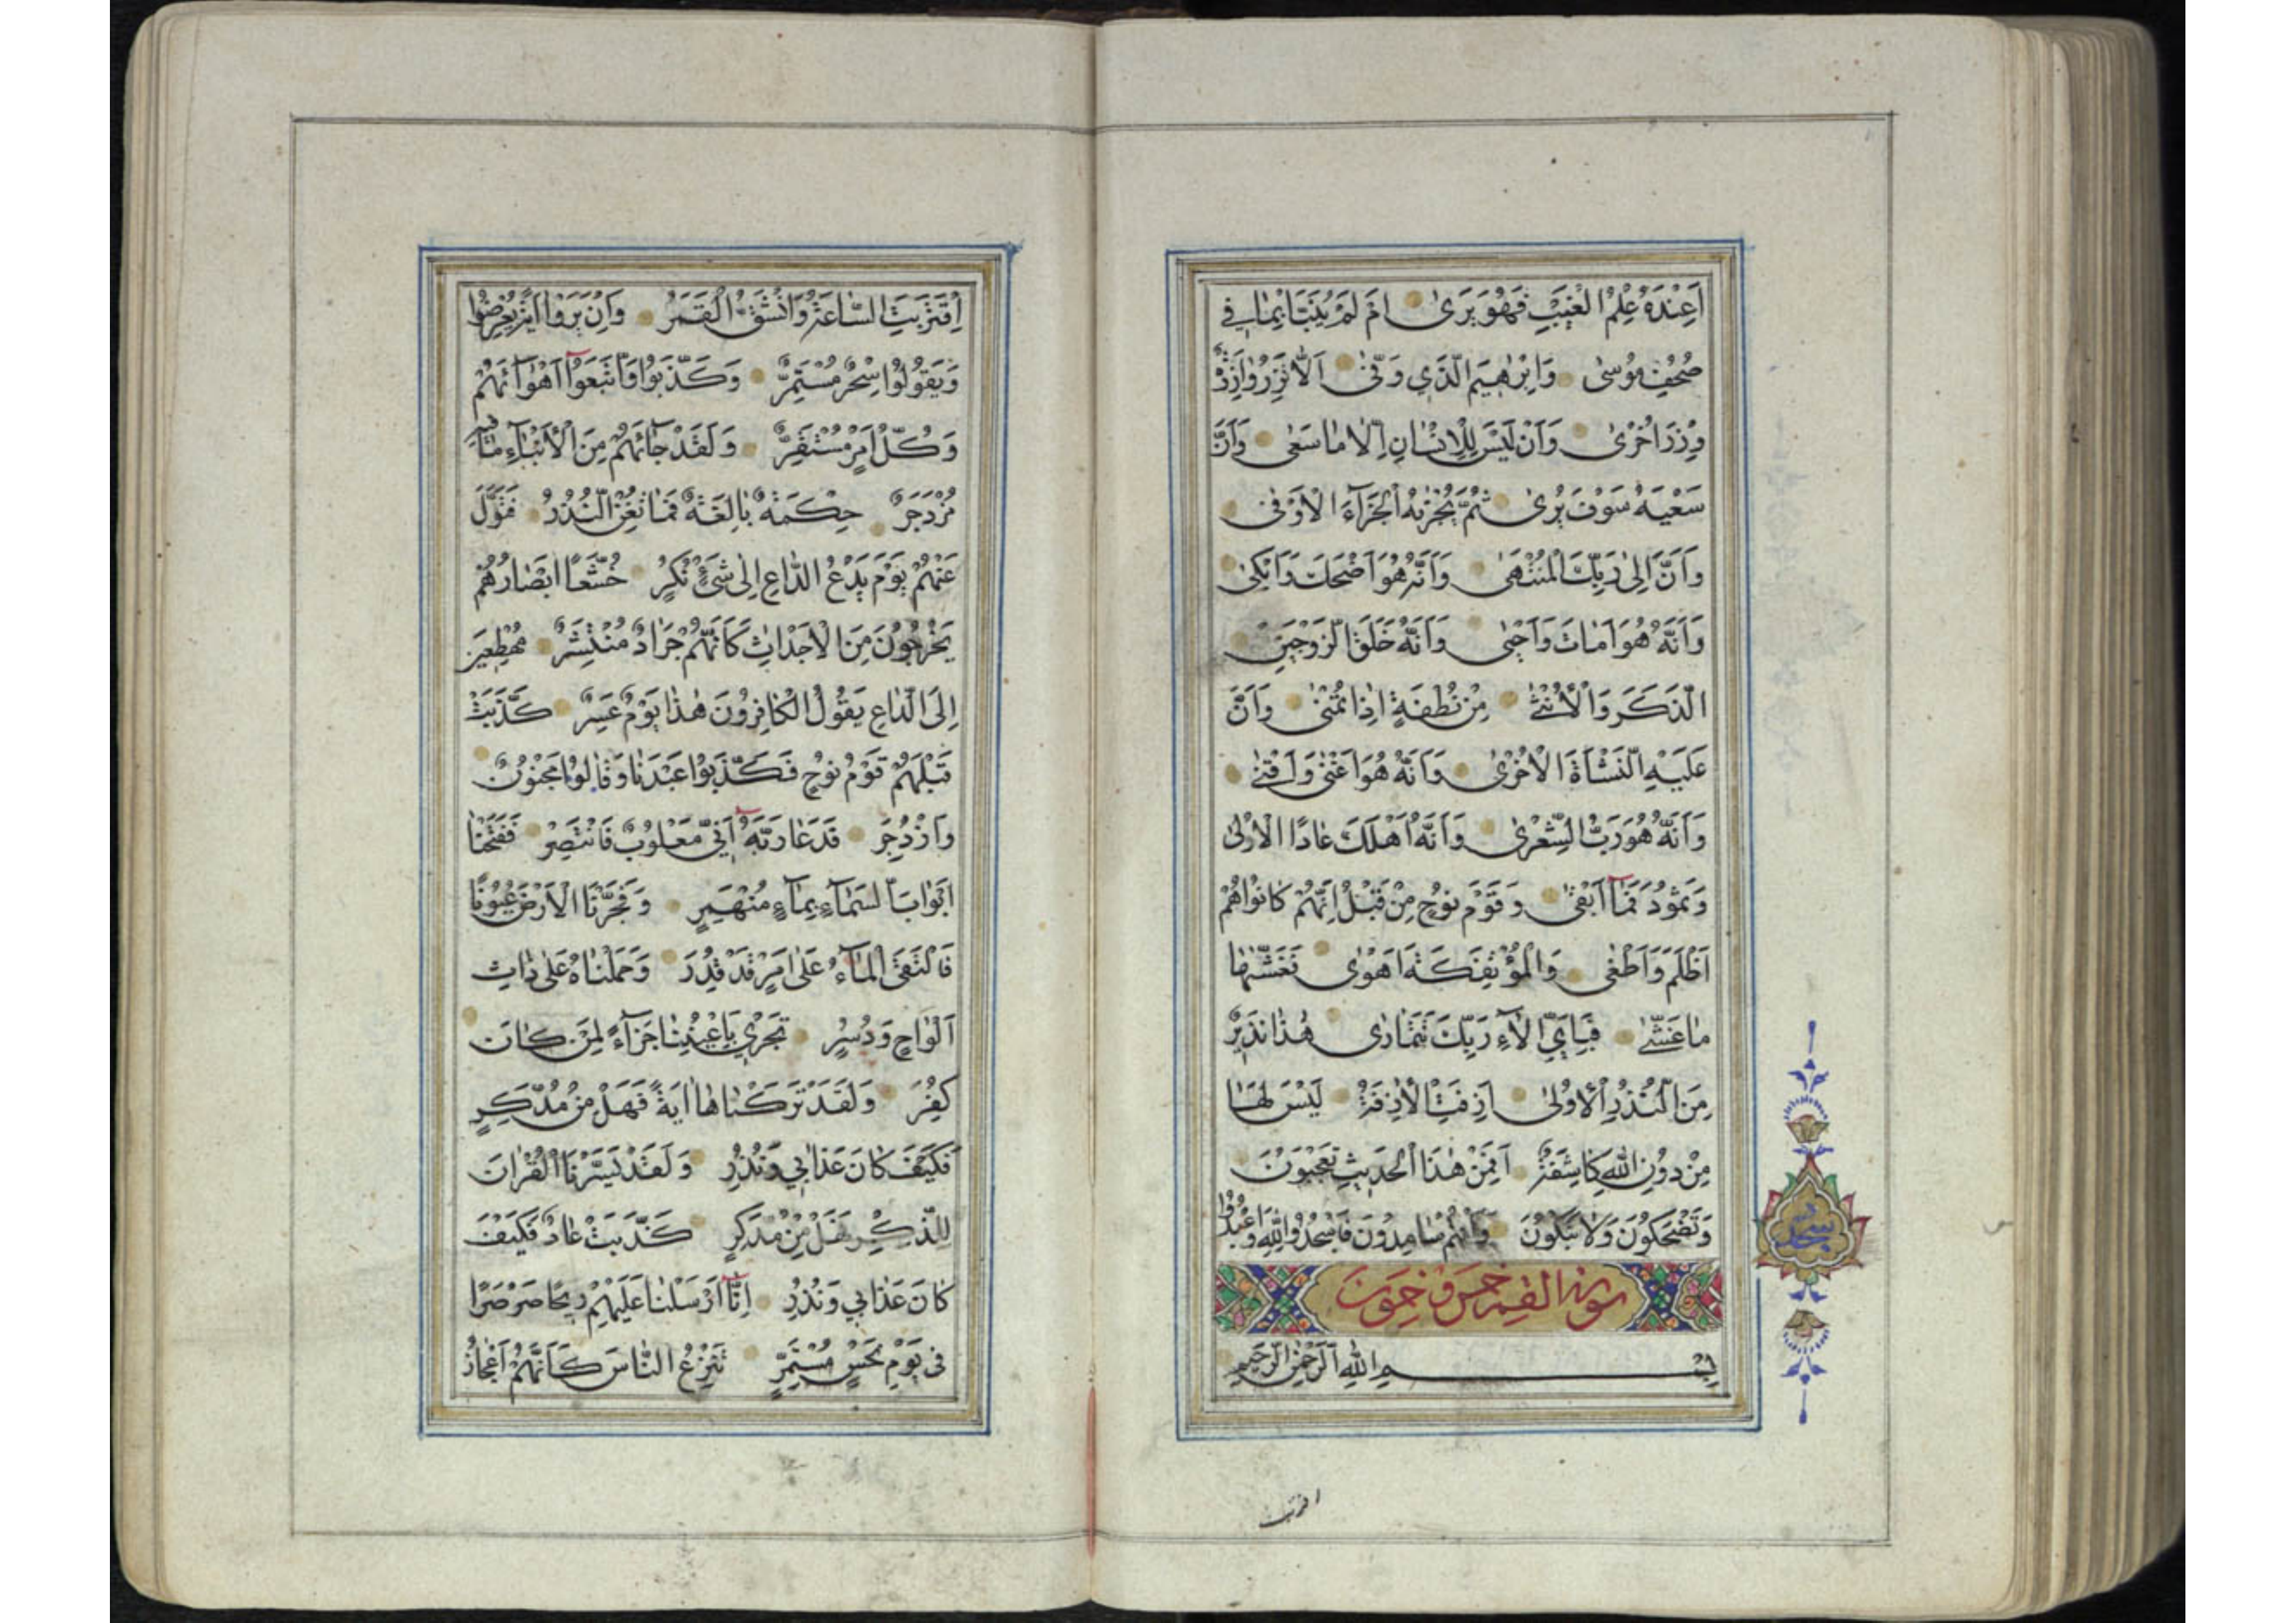 اَعِنْدَهُ عِلْمُ الْغَيْبِ فَهُوَ يَرَىٰ اَمْ لَمْ يُنَبَّأْ بِمٰا فِي
صُحُفِ مُوسىٰ وَاِبْرٰهِيمَ الَّذِي وَفّىٰ اَلّٰا تَزِرُ وٰازِرَةٌ
وِزْرَ اُخْرىٰ وَاَنْ لَيْسَ لِلْاِنْسٰانِ اِلّٰا مٰا سَعىٰ وَاَنَّ
سَعْيَهُ سَوْفَ يُرىٰ ثُمَّ يُجْزٰيهُ الْجَزٰآءَ الْاَوْفىٰ
وَاَنَّ اِلىٰ رَبِّكَ الْمُنْتَهىٰ وَاَنَّهُ هُوَ اَضْحَكَ وَاَبْكىٰ
وَاَنَّهُ هُوَ اَمٰاتَ وَاَحْيىٰ وَاَنَّهُ خَلَقَ الزَّوْجَيْنِ
الذَّكَرَ وَالْاُنْثىٰ مِنْ نُطْفَةٍ اِذٰا تُمْنىٰ وَاَنَّ
عَلَيْهِ النَّشْاَةَ الْاُخْرىٰ وَاَنَّهُ هُوَ اَغْنىٰ وَاَقْنىٰ
وَاَنَّهُ هُوَ رَبُّ الشِّعْرىٰ وَاَنَّهُ اَهْلَكَ عٰادًا الْاُولىٰ
وَثَمُودَ فَمٰآ اَبْقىٰ وَقَوْمَ نُوحٍ مِنْ قَبْلُ اِنَّهُمْ كٰانُوا هُمْ
اَظْلَمَ وَاَطْغىٰ وَالْمُؤْتَفِكَةَ اَهْوىٰ فَغَشّٰيهٰا
مٰا غَشّىٰ فَبِاَيِّ اٰلٰآءِ رَبِّكَ تَتَمٰارىٰ هٰذٰا نَذِيرٌ
مِنَ النُّذُرِ الْاُولىٰ اَزِفَتِ الْاٰزِفَةُ لَيْسَ لَهٰا
مِنْ دُونِ اللّٰهِ كٰاشِفَةٌ اَفَمِنْ هٰذَا الْحَدِيثِ تَعْجَبُونَ
وَتَضْحَكُونَ وَلٰا تَبْكُونَ وَاَنْتُمْ سٰامِدُونَ فَاسْجُدُوا لِلّٰهِ وَاعْبُدُوا
سورة القمر خمس و خمسون
بِسْمِ اللّٰهِ الرَّحْمٰنِ الرَّحِيمِ
اقتربت
اِقْتَرَبَتِ السّٰاعَةُ وَانْشَقَّ الْقَمَرُ وَاِنْ يَرَوْا اٰيَةً يُعْرِضُوا
وَيَقُولُوا سِحْرٌ مُسْتَمِرٌّ وَكَذَّبُوا وَاتَّبَعُوٓا اَهْوٰآئَهُمْ
وَكُلُّ اَمْرٍ مُسْتَقِرٌّ وَلَقَدْ جٰآئَهُمْ مِنَ الْاَنْبٰآءِ مٰا فِيهِ
مُزْدَجَرٌ حِكْمَةٌ بٰالِغَةٌ فَمٰا تُغْنِ النُّذُرُ فَتَوَلَّ
عَنْهُمْ يَوْمَ يَدْعُ الدّٰاعِ اِلىٰ شَيْءٍ نُكُرٍ خُشَّعًا اَبْصٰارُهُمْ
يَخْرُجُونَ مِنَ الْاَجْدٰاثِ كَاَنَّهُمْ جَرٰادٌ مُنْتَشِرٌ مُهْطِعِينَ
اِلَى الدّٰاعِ يَقُولُ الْكٰافِرُونَ هٰذٰا يَوْمٌ عَسِرٌ كَذَّبَتْ
قَبْلَهُمْ قَوْمُ نُوحٍ فَكَذَّبُوا عَبْدَنٰا وَقٰالُوا مَجْنُونٌ
وَازْدُجِرَ فَدَعٰا رَبَّهُٓ اَنِّي مَغْلُوبٌ فَانْتَصِرْ فَفَتَحْنٰا
اَبْوٰابَ السَّمٰآءِ بِمٰآءٍ مُنْهَمِرٍ وَفَجَّرْنَا الْاَرْضَ عُيُونًا
فَالْتَقَى الْمٰآءُ عَلىٰ اَمْرٍ قَدْ قُدِرَ وَحَمَلْنٰاهُ عَلىٰ ذٰاتِ
اَلْوٰاحٍ وَدُسُرٍ تَجْرِي بِاَعْيُنِنٰا جَزٰآءً لِمَنْ كٰانَ
كُفِرَ وَلَقَدْ تَرَكْنٰاهٰا اٰيَةً فَهَلْ مِنْ مُدَّكِرٍ
فَكَيْفَ كٰانَ عَذٰابِي وَنُذُرِ وَلَقَدْ يَسَّرْنَا الْقُرْاٰنَ
لِلذِّكْرِ فَهَلْ مِنْ مُدَّكِرٍ كَذَّبَتْ عٰادٌ فَكَيْفَ
كٰانَ عَذٰابِي وَنُذُرِ اِنّٰآ اَرْسَلْنٰا عَلَيْهِمْ رِيحًا صَرْصَرًا
فِي يَوْمِ نَحْسٍ مُسْتَمِرٍّ تَنْزِعُ النّٰاسَ كَاَنَّهُمْ اَعْجٰازُ